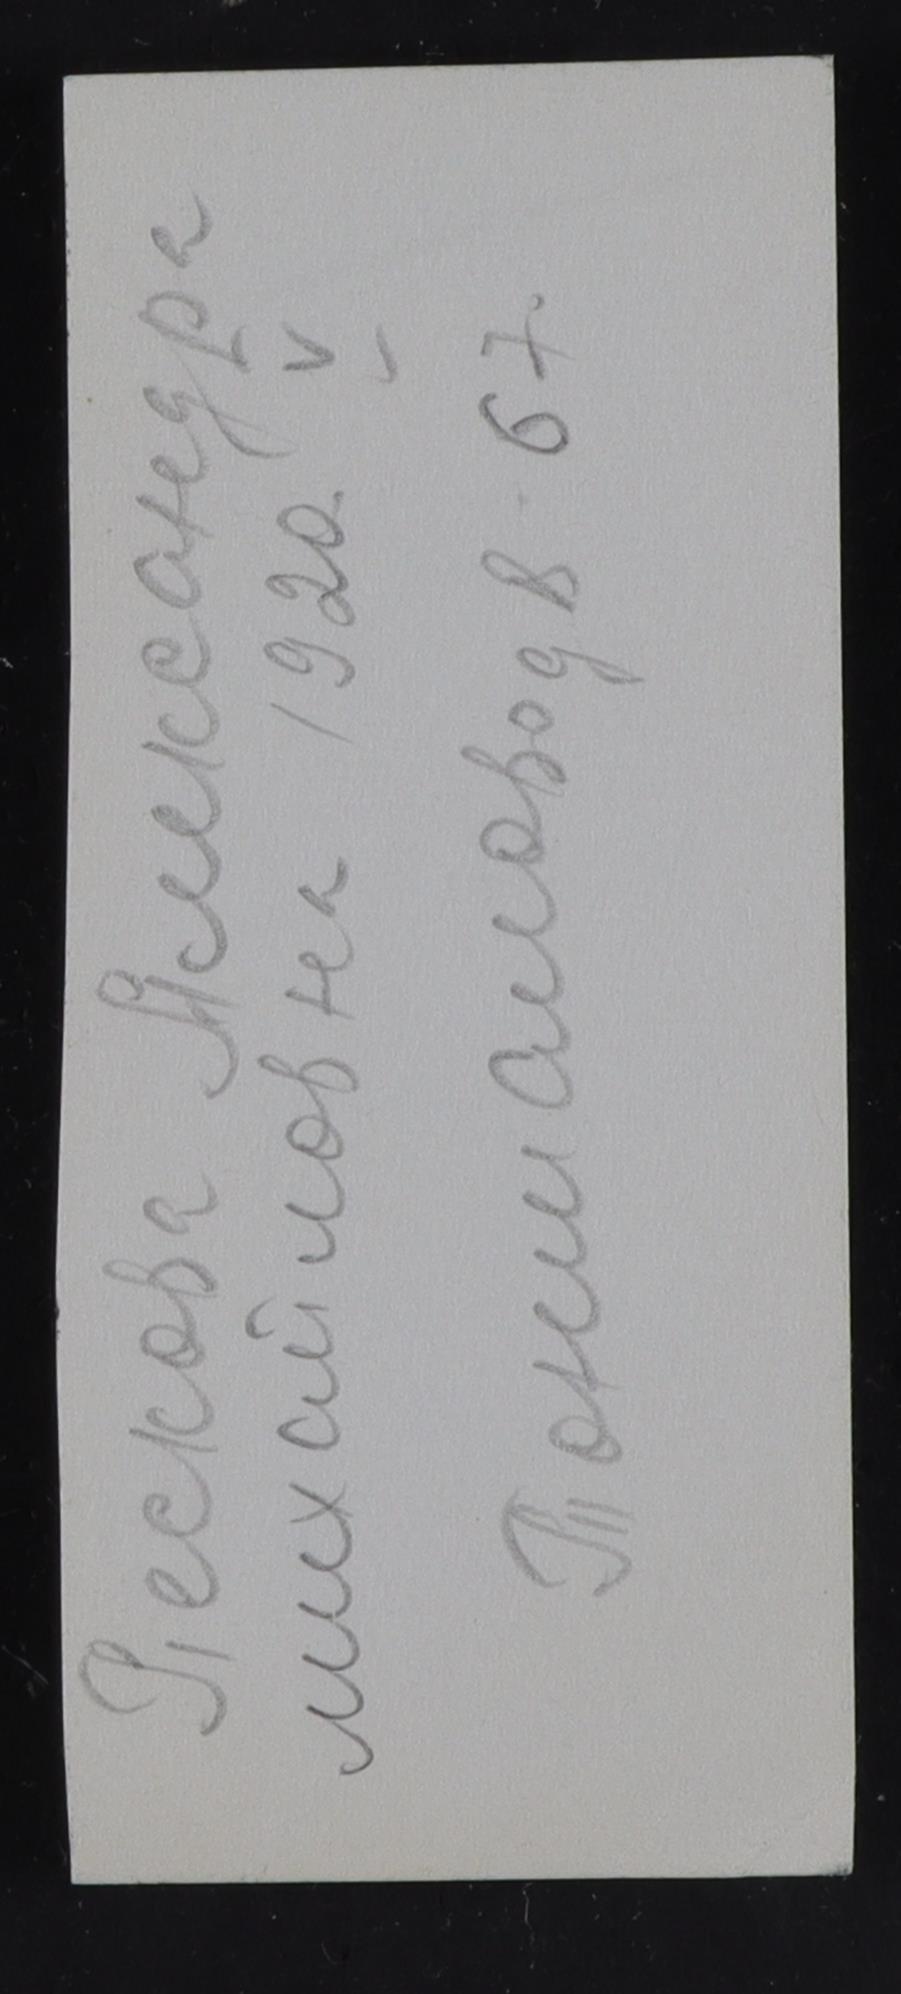 Пескова Александра
михайловна 1920. v
Понималовод В-67.